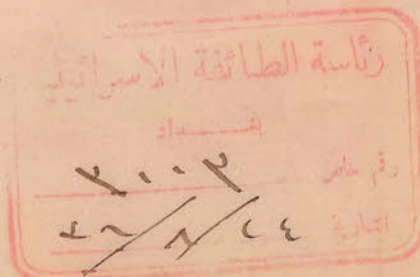 رئاسة الطائفة الاسرائيلية
بغداد
رقم خاص ٣٠٠٣
التاريخ ٢٤/٨/٤٦